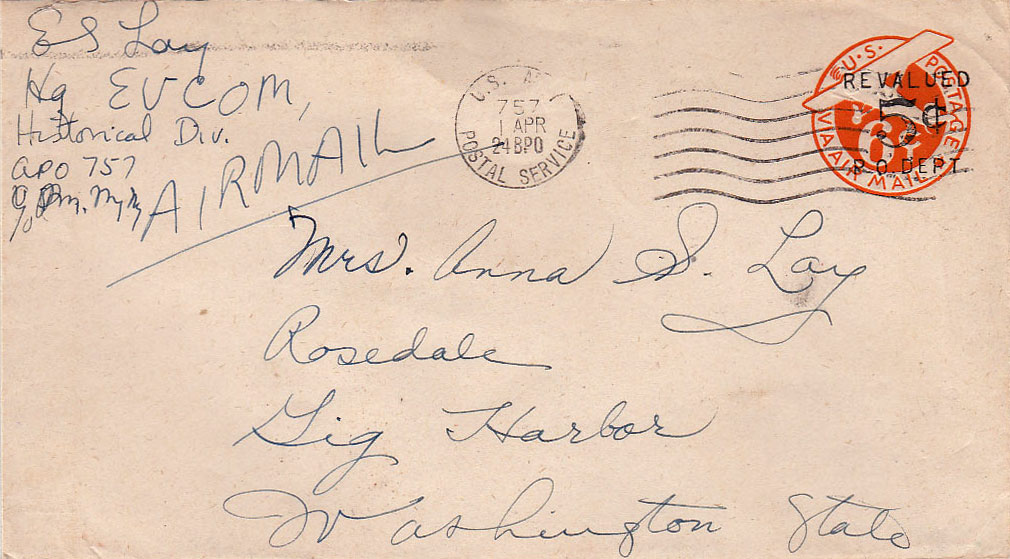 ES Lay
Hq EUCOM,
Historical Div.
APO 757
c/o P.M. N.Y.
AIRMAIL
U.S. A
757
1 APR
24BPO
POSTAL SERVICE
U.S. POSTAGE
REVALUED
5¢
6¢
P.O. DEPT.
VIA AIR MAIL
Mrs. Anna S. Lay
Rosedale
Gig Harbor
Washington State